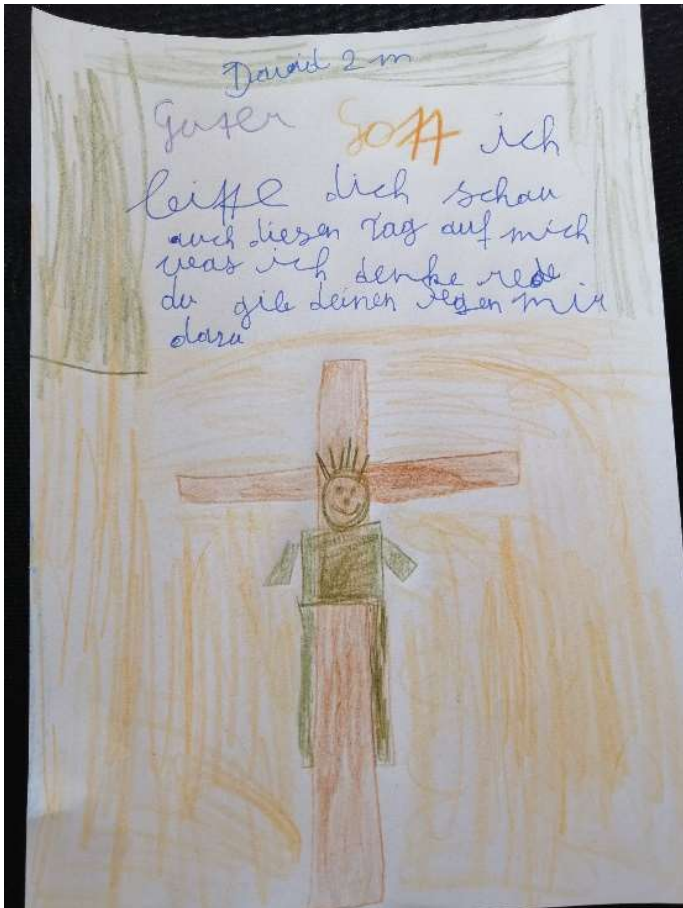 David 2 m
Guter Gott ich
bitte dich schau
auch diesen Tag auf mich
was ich denke rede
du gib deinen segen mir
dazu